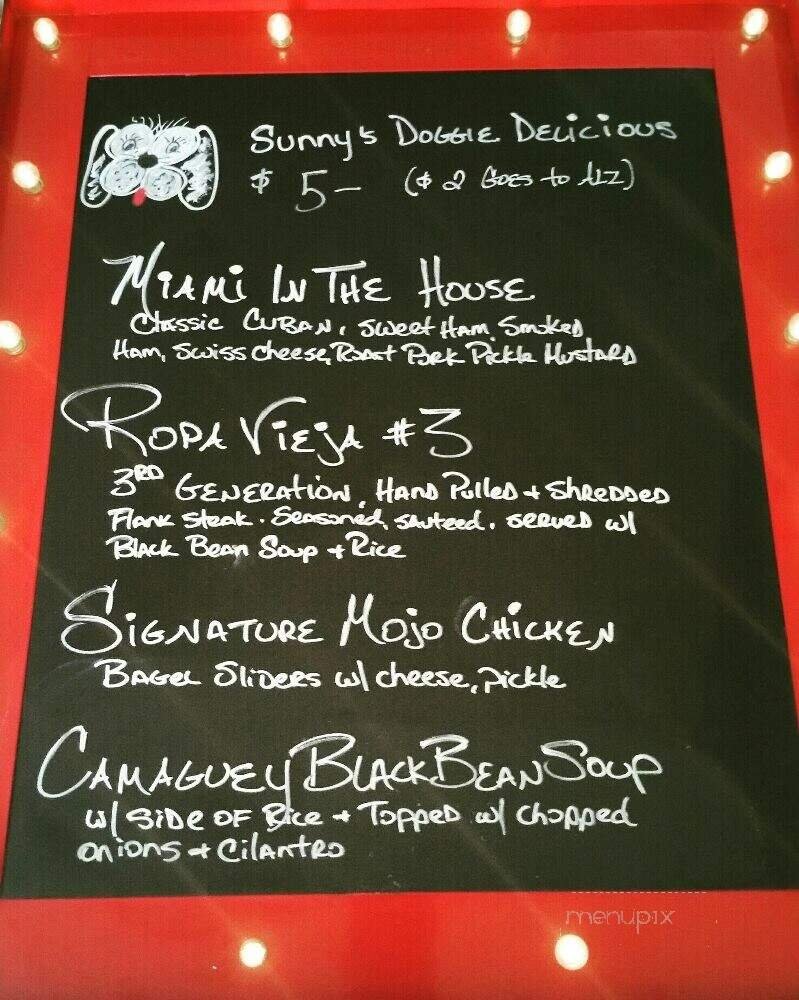 Sunny's Doggie Delicious
$ 5- ($ 2 Goes to ALZ)
Miami In The House
Classic Cuban, Sweet Ham Smoked
Ham, Swiss Cheese, Roast Pork Pickle Mustard
Ropa Vieja #3
3RD Generation, Hand Pulled + Shredded
Flank Steak. Seasoned, sauteed. served w/
Black Bean Soup + Rice
Signature Mojo Chicken
Bagel Sliders w/ cheese, pickle
Camaguey Black Bean Soup
w/ side of Rice + Topped w/ chopped
onions + Cilantro
menupix